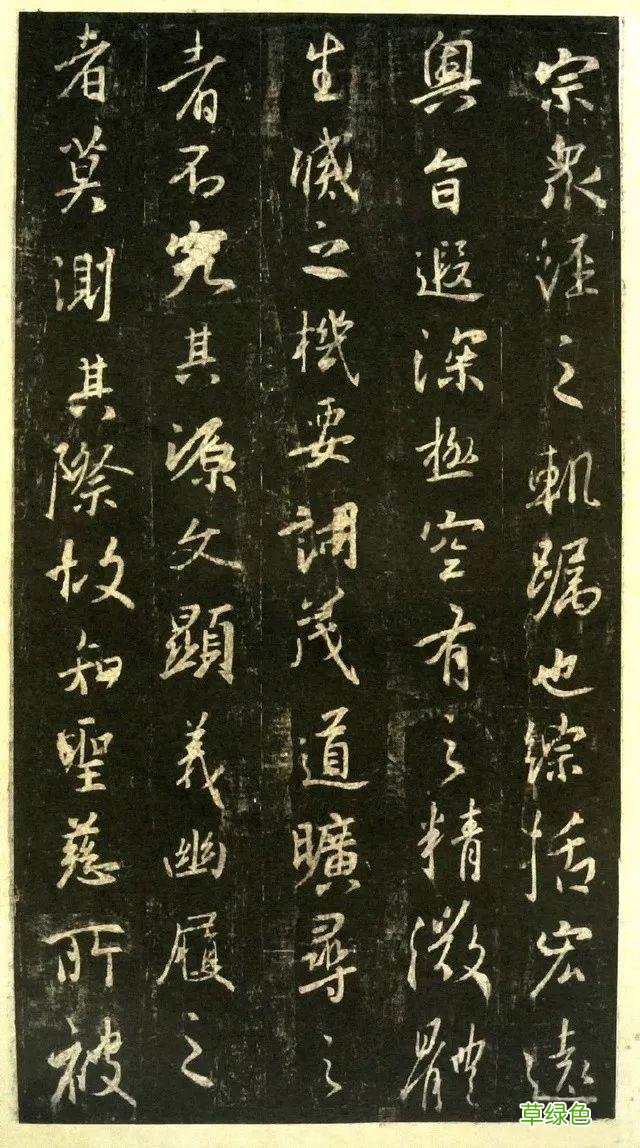 宗衆經之軌躅也綜括宏遠
奧旨遐深極空有之精微體
生滅之機要詞茂道曠尋之
者不究其源文顯義幽履之
者莫測其際故知聖慈所被
草绿色